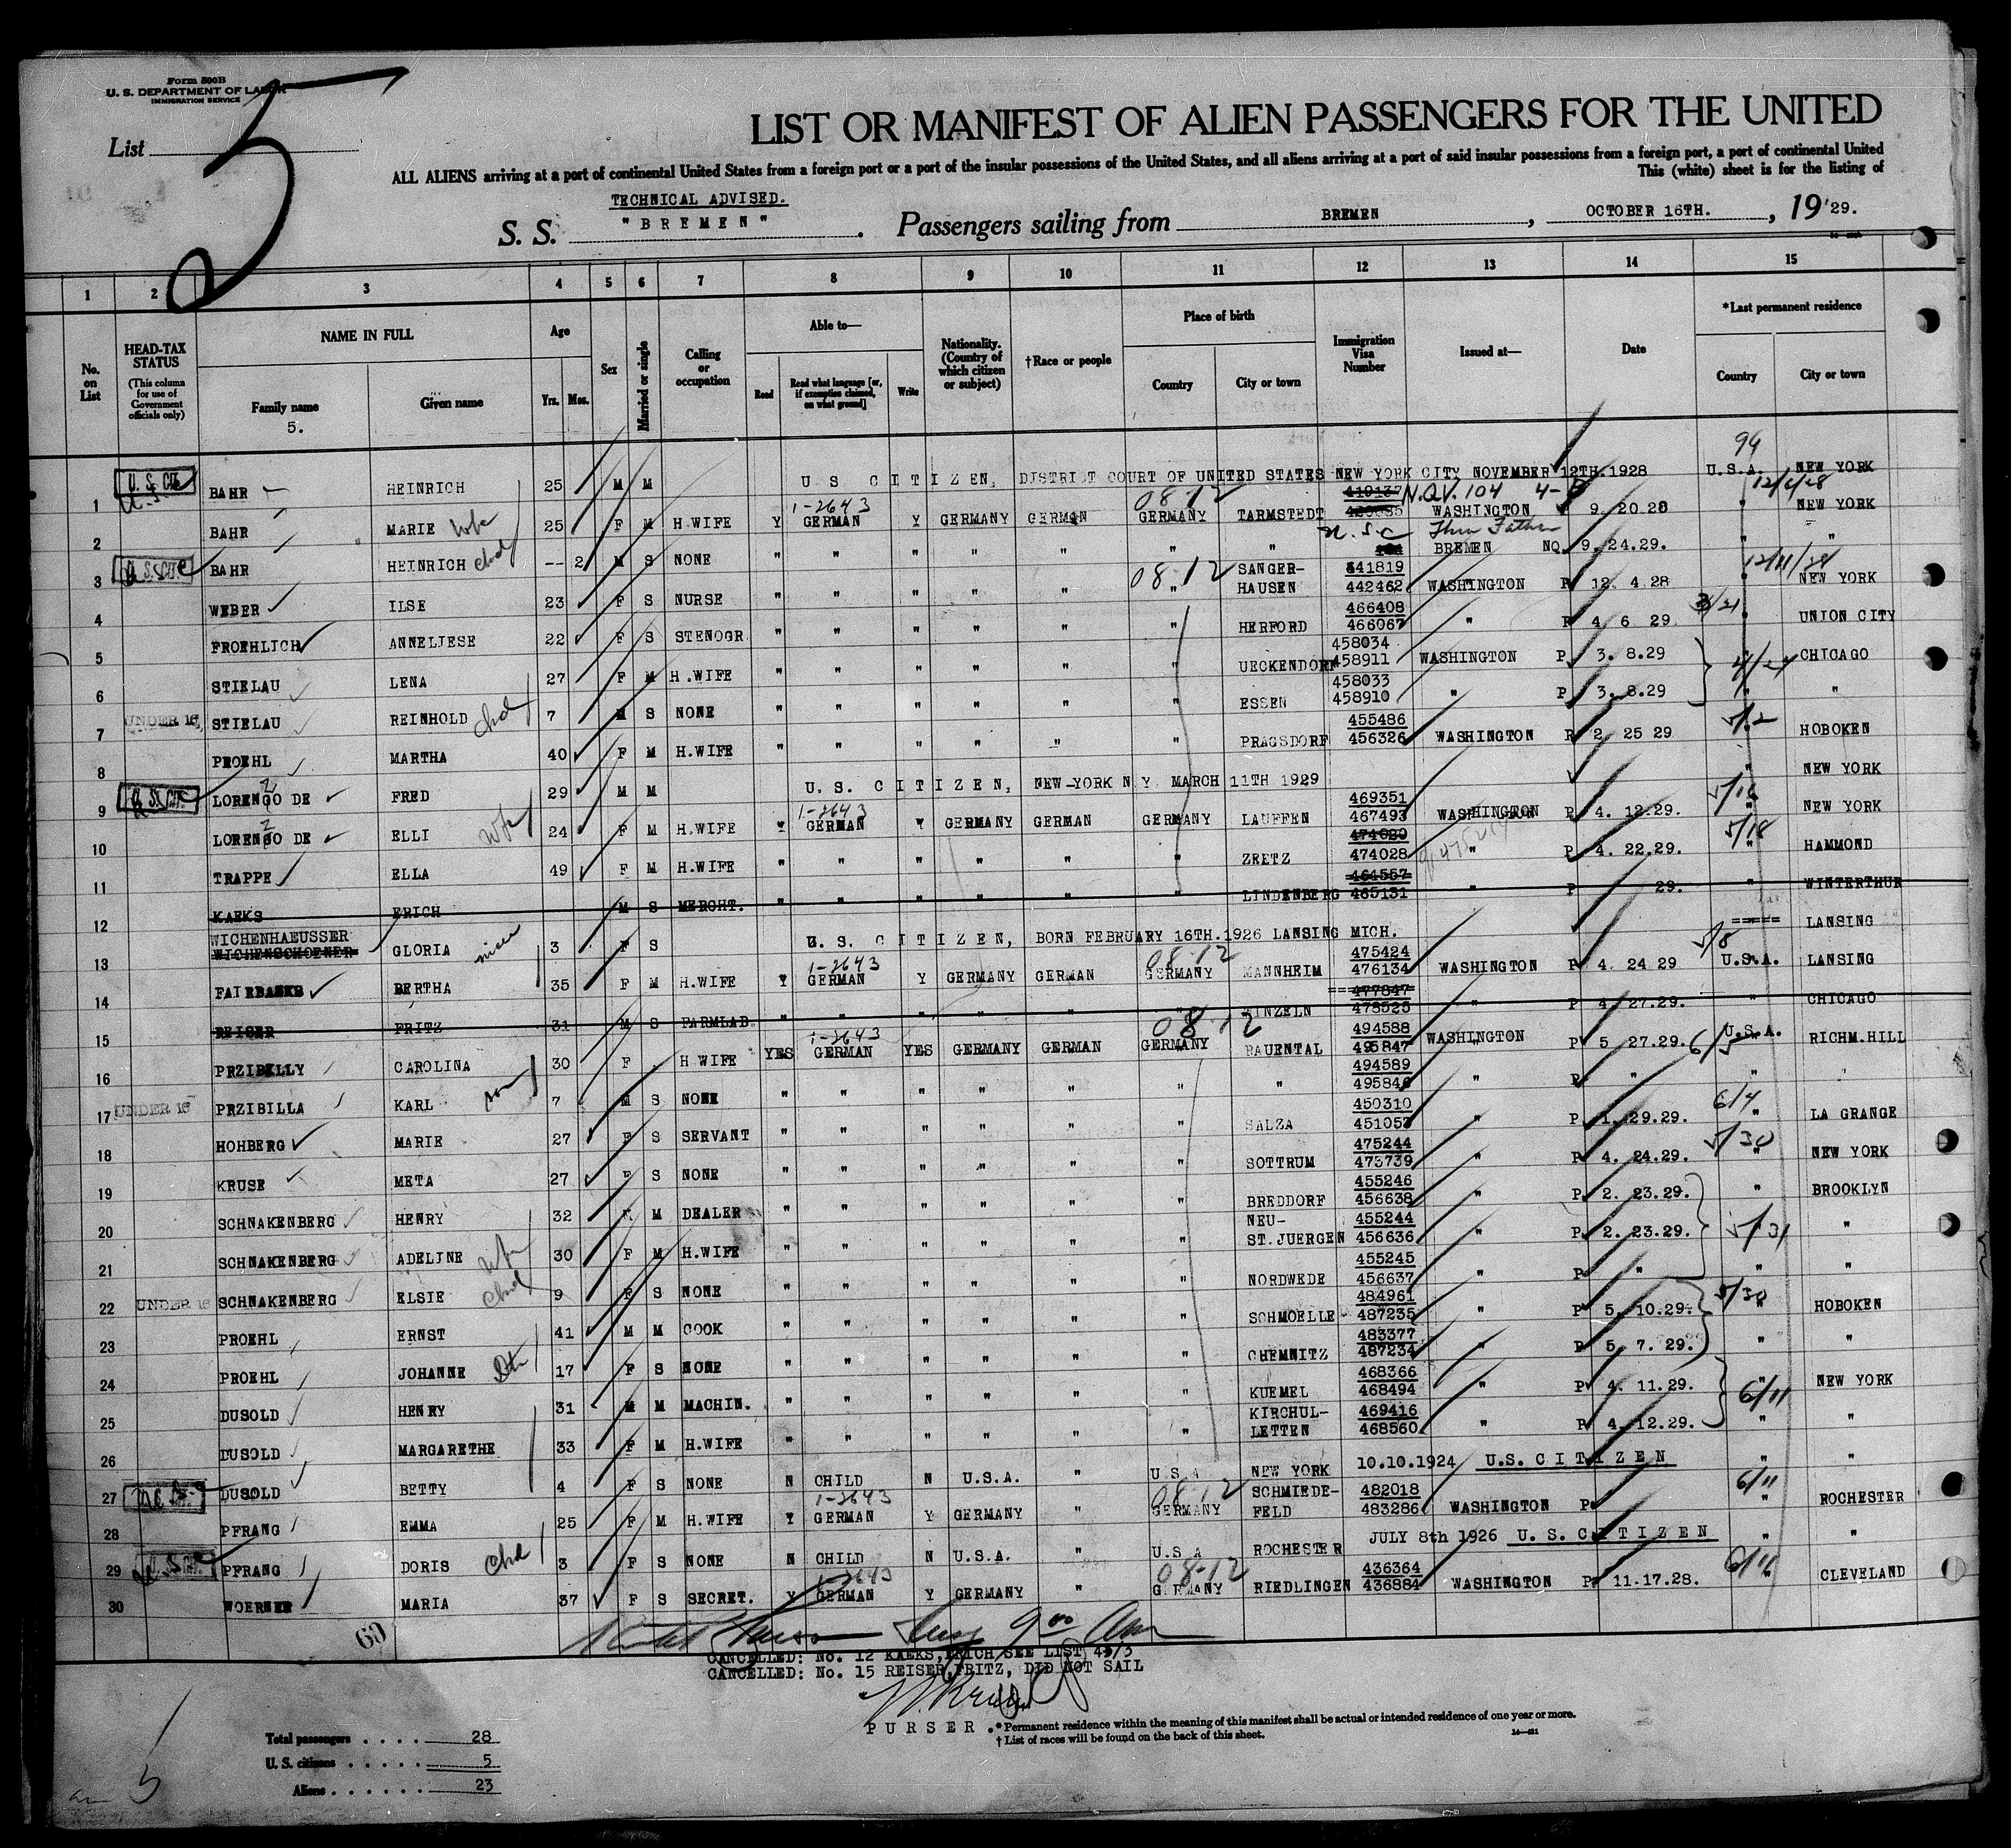 Form 500B
U. S. DEPARTMENT OF LABOR
IMMIGRATION SERVICE
List
5
LIST OR MANIFEST OF ALIEN PASSENGERS FOR THE UNITED
ALL ALIENS arriving at a port of continental United States from a foreign port or a port of the insular possessions of the United States, and all aliens arriving at a port of said insular possessions from a foreign port, a port of continental United
This (white) sheet is for the listing of
TECHNICAL ADVISED.
S. S. "BREMEN". Passengers sailing from BREMEN, OCTOBER 16TH., 19'29.
1 2 3 4 5 6 7 8 9 10 11 12 13 14 15
No. on List
HEAD-TAX STATUS (This column for use of Government officials only)
NAME IN FULL Family name Given name
5.
Age Yrs. Mos.
Sex
Married or single
Calling or occupation
Able to— Read Read what language [or, if exemption claimed, on what ground] Write
Nationality. (Country of which citizen or subject)
†Race or people
Place of birth Country City or town
Immigration Visa Number
Issued at—
Date
*Last permanent residence Country City or town
94
1 U.S. CIT. BAHR HEINRICH 25 M M U.S. CITIZEN, DISTRICT COURT OF UNITED STATES NEW YORK CITY NOVEMBER 12TH.1928 U.S.A. NEW YORK
1-2643 08-12 419137 N.Q.V. 104 12/4/28
2 BAHR MARIE wfe 25 F M H.WIFE Y GERMAN Y GERMANY GERMAN GERMANY TARMSTEDT WASHINGTON 9.20.28 " NEW YORK
U.S.C Thru Father
3 U.S. CIT. BAHR HEINRICH chd -- 2 M S NONE " " " " " " " BREMEN NQ 9.24.29. " "
08-12 SANGER- 341819 12/11/28
4 WEBER ILSE 23 F S NURSE " " " " " " HAUSEN 442462 WASHINGTON P 12. 4 28 NEW YORK
466408
5 FROEHLICH ANNELIESE 22 F S STENOGR " " " " " " HERFORD 466067 " P 4 6 29 3/21 UNION CITY
458034
6 STIELAU LENA 27 F M H.WIFE " " " " " " UECKENDORF 458911 WASHINGTON P 3. 8.29 4/24 CHICAGO
458033
7 UNDER 16 STIELAU REINHOLD chd 7 M S NONE " " " " " " ESSEN 458910 " P 3. 8.29 " "
455486
8 PROEHL MARTHA 40 F M H.WIFE " " " " " " PRAGSDORF 456326 WASHINGTON P 2 25 29 5/2 HOBOKEN
9 U.S. CIT. LORENGO DE FRED 29 M M U.S. CITIZEN, NEW-YORK N Y. MARCH 11TH 1929 NEW YORK
1-2643 469351 5/16
10 LORENGO DE ELLI wfe 24 F M H.WIFE Y GERMAN Y GERMANY GERMAN GERMANY LAUFFEN 467493 WASHINGTON P 4. 12.29. " NEW YORK
474020 5/18
11 TRAPPE ELLA 49 F M H.WIFE " " " " " " ZRETZ 474028 " P 4. 22.29. " HAMMOND
464557
12 KAEKS ERICH M S MERCHT. " " " " " " LINDENBERG 465131 " P 29. " WINTERTHUR
WICHENHAEUSSER
13 WICHENSCHOENER GLORIA niece 3 F S U.S. CITIZEN, BORN FEBRUARY 16TH.1926 LANSING MICH. ===== LANSING
1-2643 08-12 475424 5/8
14 FAIRBANKS BERTHA 35 F M H.WIFE Y GERMAN Y GERMANY GERMAN GERMANY MANNHEIM 476134 WASHINGTON P 4. 24 29 U.S.A. LANSING
477847
15 REISER FRITZ 31 M S FARMLAB " " " " " " WINZELN 478525 " P 4. 27.29. " CHICAGO
1-2643 08-12 494588
16 PRZIBILLY CAROLINA 30 F H WIFE YES GERMAN YES GERMANY GERMAN GERMANY RAUENTAL 495847 WASHINGTON P 5 27.29. 6/5 U.S.A. RICHM.HILL
494589
17 UNDER 16 PRZIBILLA KARL son 7 M S NONE " " " " " " " 495846 " P " " "
450310 6/4
18 HOHBERG MARIE 27 F S SERVANT " " " " " " SALZA 451057 " P 1. 29.29. " LA GRANGE
475244 5/30
19 KRUSE META 27 F S NONE " " " " " " SOTTRUM 473739 " P 4. 24.29. " NEW YORK
455246
20 SCHNAKENBERG HENRY 32 M DEALER " " " " " " BREDDORF 456638 " P 2. 23.29. " BROOKLYN
NEU- 455244
21 SCHNAKENBERG ADELINE wfe 30 F M H.WIFE " " " " " " ST.JUERGEN 456636 " P 2. 23.29. 5/31 "
455245
22 UNDER 16 SCHNAKENBERG ELSIE chd 9 F S NONE " " " " " " NORDWEDE 456637 " P " " "
484961 5/30
23 PROEHL ERNST 41 M M COOK " " " " " " SCHMOELLE 487235 " P 5. 10.29. " HOBOKEN
483377
24 PROEHL JOHANNE Dtr 17 F S NONE " " " " " " CHEMNITZ 487234 " P 5. 7. 29. " "
468366
25 DUSOLD HENRY 31 M M MACHIN. " " " " " " KUEMEL 468494 " P 4. 11.29. 6/11 NEW YORK
KIRCHUL- 469416
26 DUSOLD MARGARETHE 33 F M H.WIFE " " " " " " LETTEN 468560 " P 4. 12.29. " "
27 DUSOLD BETTY 4 F S NONE N CHILD N U.S.A. " U.S.A NEW YORK 10.10.1924 U.S.CITIZEN " "
1-2643 08-12 SCHMIEDE- 482018 6/11
28 PFRANG EMMA 25 F M H.WIFE Y GERMAN Y GERMANY " GERMANY FELD 483286 WASHINGTON P " ROCHESTER
29 U.S. CIT. PFRANG DORIS chd 3 F S NONE N CHILD N U.S.A. " U.S.A ROCHESTER JULY 8th 1926 U.S.CITIZEN " "
1-2643 08-12 436364 6/16
30 WOERNER MARIA 37 F S SECRET. Y GERMAN Y GERMANY " GERMANY RIEDLINGEN 436884 WASHINGTON P 11.17.28. CLEVELAND
60
9 00 Am
CANCELLED: No. 12 KAEKS,ERICH SEE LIST 49/3
CANCELLED: No. 15 REISER,FRITZ, DID NOT SAIL
PURSER.
*Permanent residence within the meaning of this manifest shall be actual or intended residence of one year or more.
† List of races will be found on the back of this sheet.
Total passengers . . . . 28
U. S. citizens . . . . . 5
Aliens . . . . . . 23
5